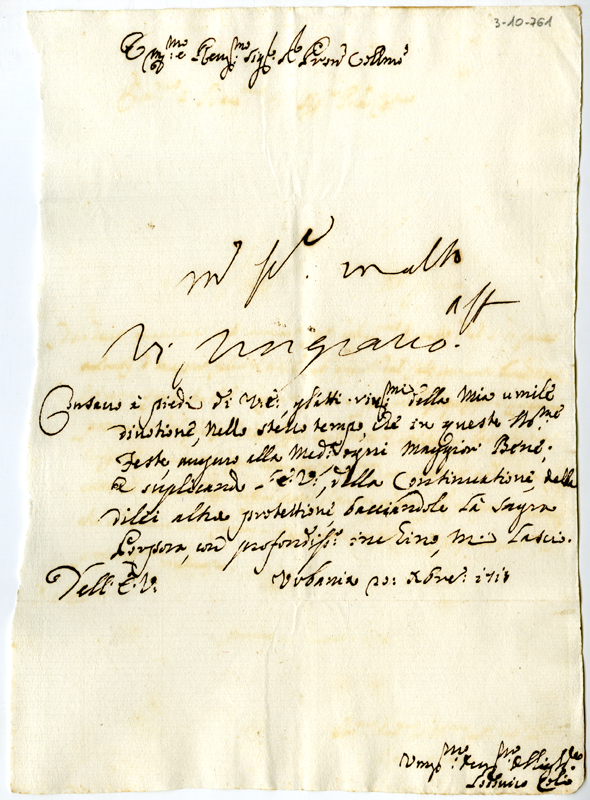 3-10-761
Em.mo e Rev.mo Sig.r Pron Collmo
molto
aff
Vi ringratio.
Consacro à piedi di V.E. gl'atti della Mia umile
divotione, nello stesso tempo, che in queste
Feste, auguro alla Med.a ogni Maggior Bene.
E suplicand V., della Continuatione, della
dilei alta protettione, bacciandole La Sagra
Porpora, con profondiss.o inchino, Mi Lascio.
Dell'E.V. Urbania 20: Xbre. 171
Lodovico